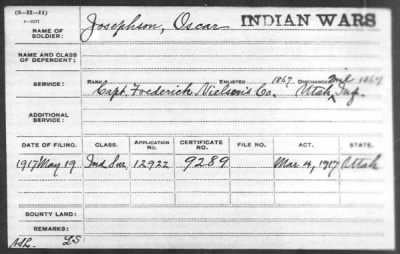 (3-II-11)
NAME OF SOLDIER: Josephson, Oscar INDIAN WARS
NAME AND CLASS OF DEPENDENT:
SERVICE: RANK ENLISTED 1867 DISCHARGED 1867
Capt. Frederick Nielson's Co. Utah Mil Inf.
ADDITIONAL SERVICE:
DATE OF FILING. CLASS. APPLICATION No. CERTIFICATE NO. FILE NO. ACT. STATE.
1917 May 19 Ind Sur. 12922 9289 Mar 4, 1917 Utah
BOUNTY LAND:
REMARKS: